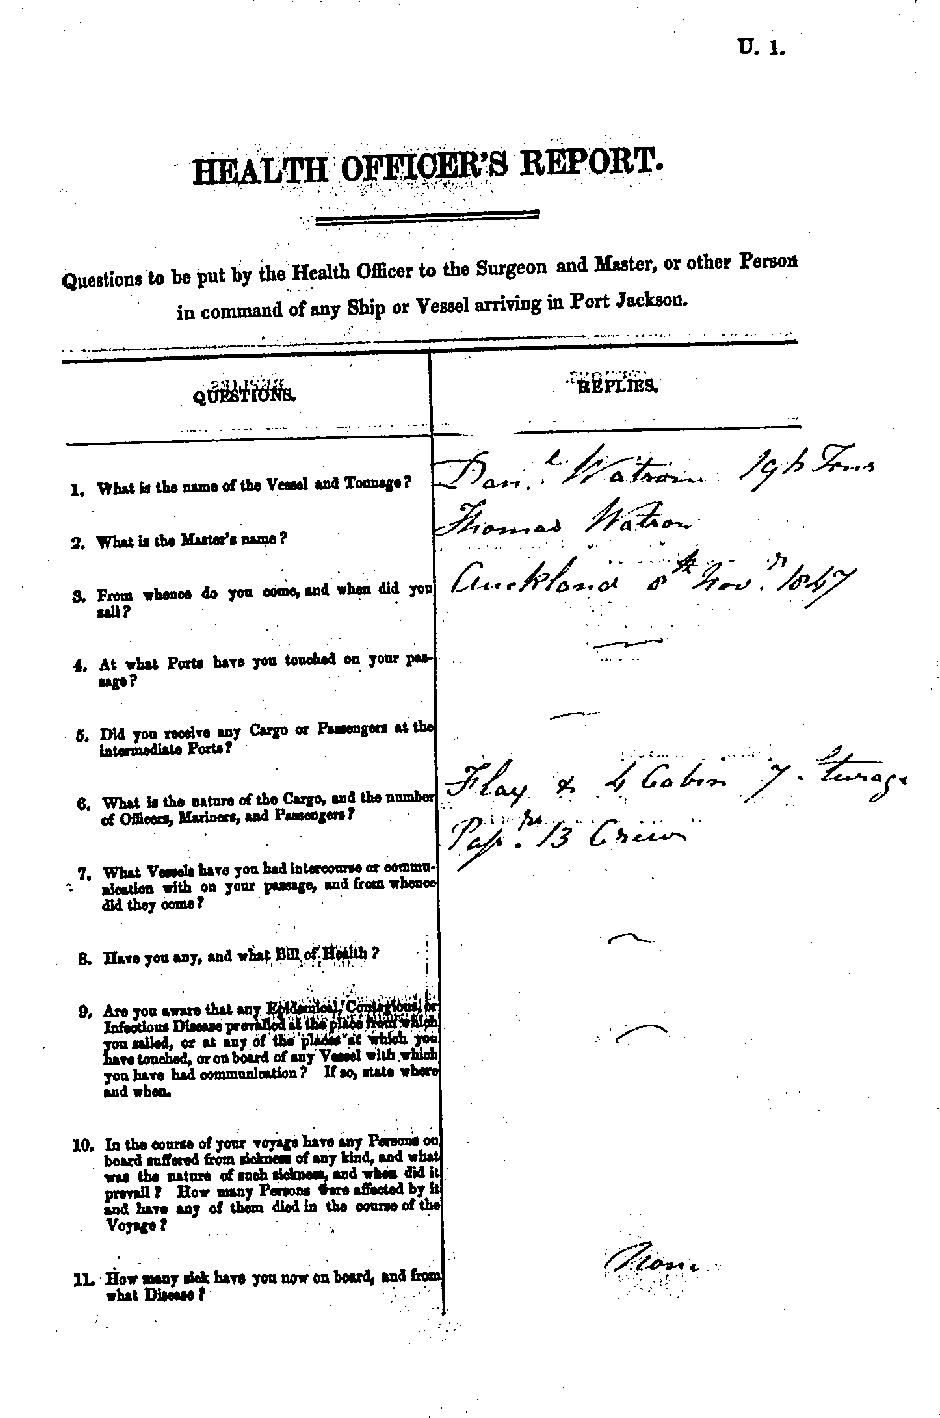 U. 1.
HEALTH OFFICER'S REPORT.
Questions to be put by the Health Officer to the Surgeon and Master, or other Person
in command of any Ship or Vessel arriving in Port Jackson.
QUESTIONS.
REPLIES.
1. What is the name of the Vessel and Tonnage?
Danl. Watson Tons
2. What is the Master's name?
Thomas Watson
3. From whence do you come, and when did you
sail?
Auckland 8th Novr. 1847
4. At what Ports have you touched on your pas-
sage?
5. Did you receive any Cargo or Passengers at the
intermediate Ports?
6. What is the nature of the Cargo, and the number
of Officers, Mariners, and Passengers?
& 4 Cabin 7. Sturage
Pasrs. 13 Crew
7. What Vessels have you had intercourse or commu-
nication with on your passage, and from whence
did they come?
8. Have you any, and what Bill of Health?
9. Are you aware that any Epidemical, Contagious, or
Infectious Disease prevailed at the place from which
you sailed, or at any of the places at which you
have touched, or on board of any Vessel with which
you have had communication? If so, state where
and when.
10. In the course of your voyage have any Persons on
board suffered from sickness of any kind, and what
was the nature of such sickness, and when did it
prevail? How many Persons were affected by it
and have any of them died in the course of the
Voyage?
11. How many sick have you now on board, and from
what Disease?
None